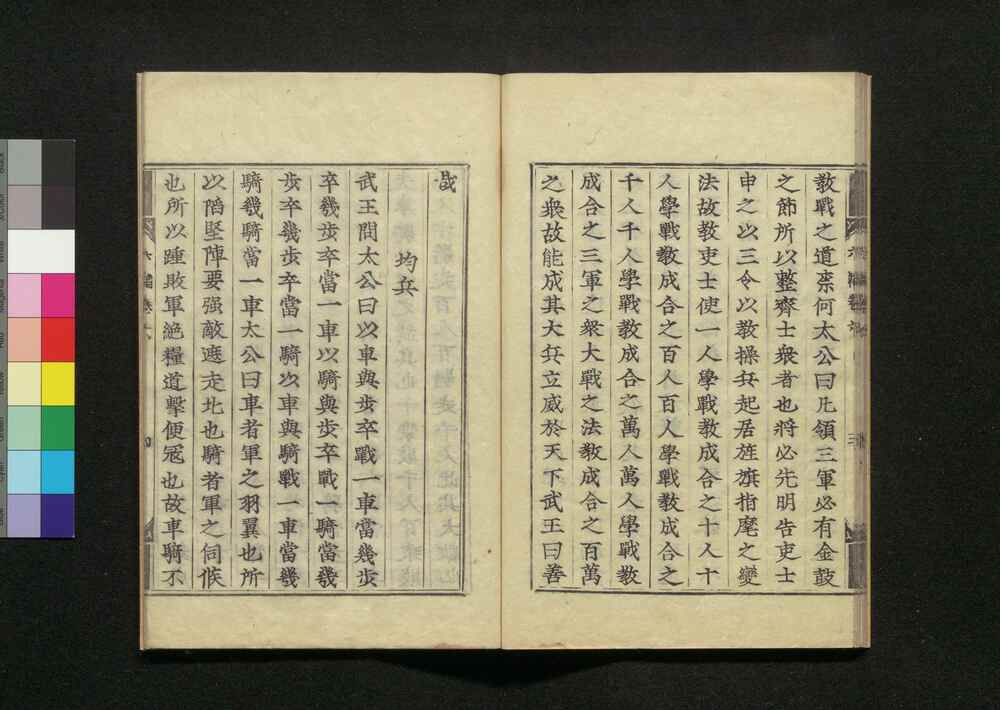 教戰之道柰何太公曰凡領三軍必有金鼓
之節所以整齊士衆者也將必先明告吏士
申之以三令以教操兵起居旌旗指麾之變
法故教吏士使一人學戰教成合之十人十
人學戰教成合之百人百人學戰教成合之
千人千人學戰教成合之萬人萬人學戰教
成合之三軍之衆大戰之法教成合之百萬
之衆故能成其大兵立威於天下武王曰善
哉
均兵
武王問太公曰以車與步卒戰一車當幾步
卒幾步卒當一車以騎與步卒戰一騎當幾
步卒幾步卒當一騎以車與騎戰一車當幾
騎幾騎當一車太公曰車者軍之羽翼也所
以陷堅陣要强敵遮走北也騎者軍之伺候
也所以踵敗軍絶糧道擊便冦也故車騎不
六韜卷六
四